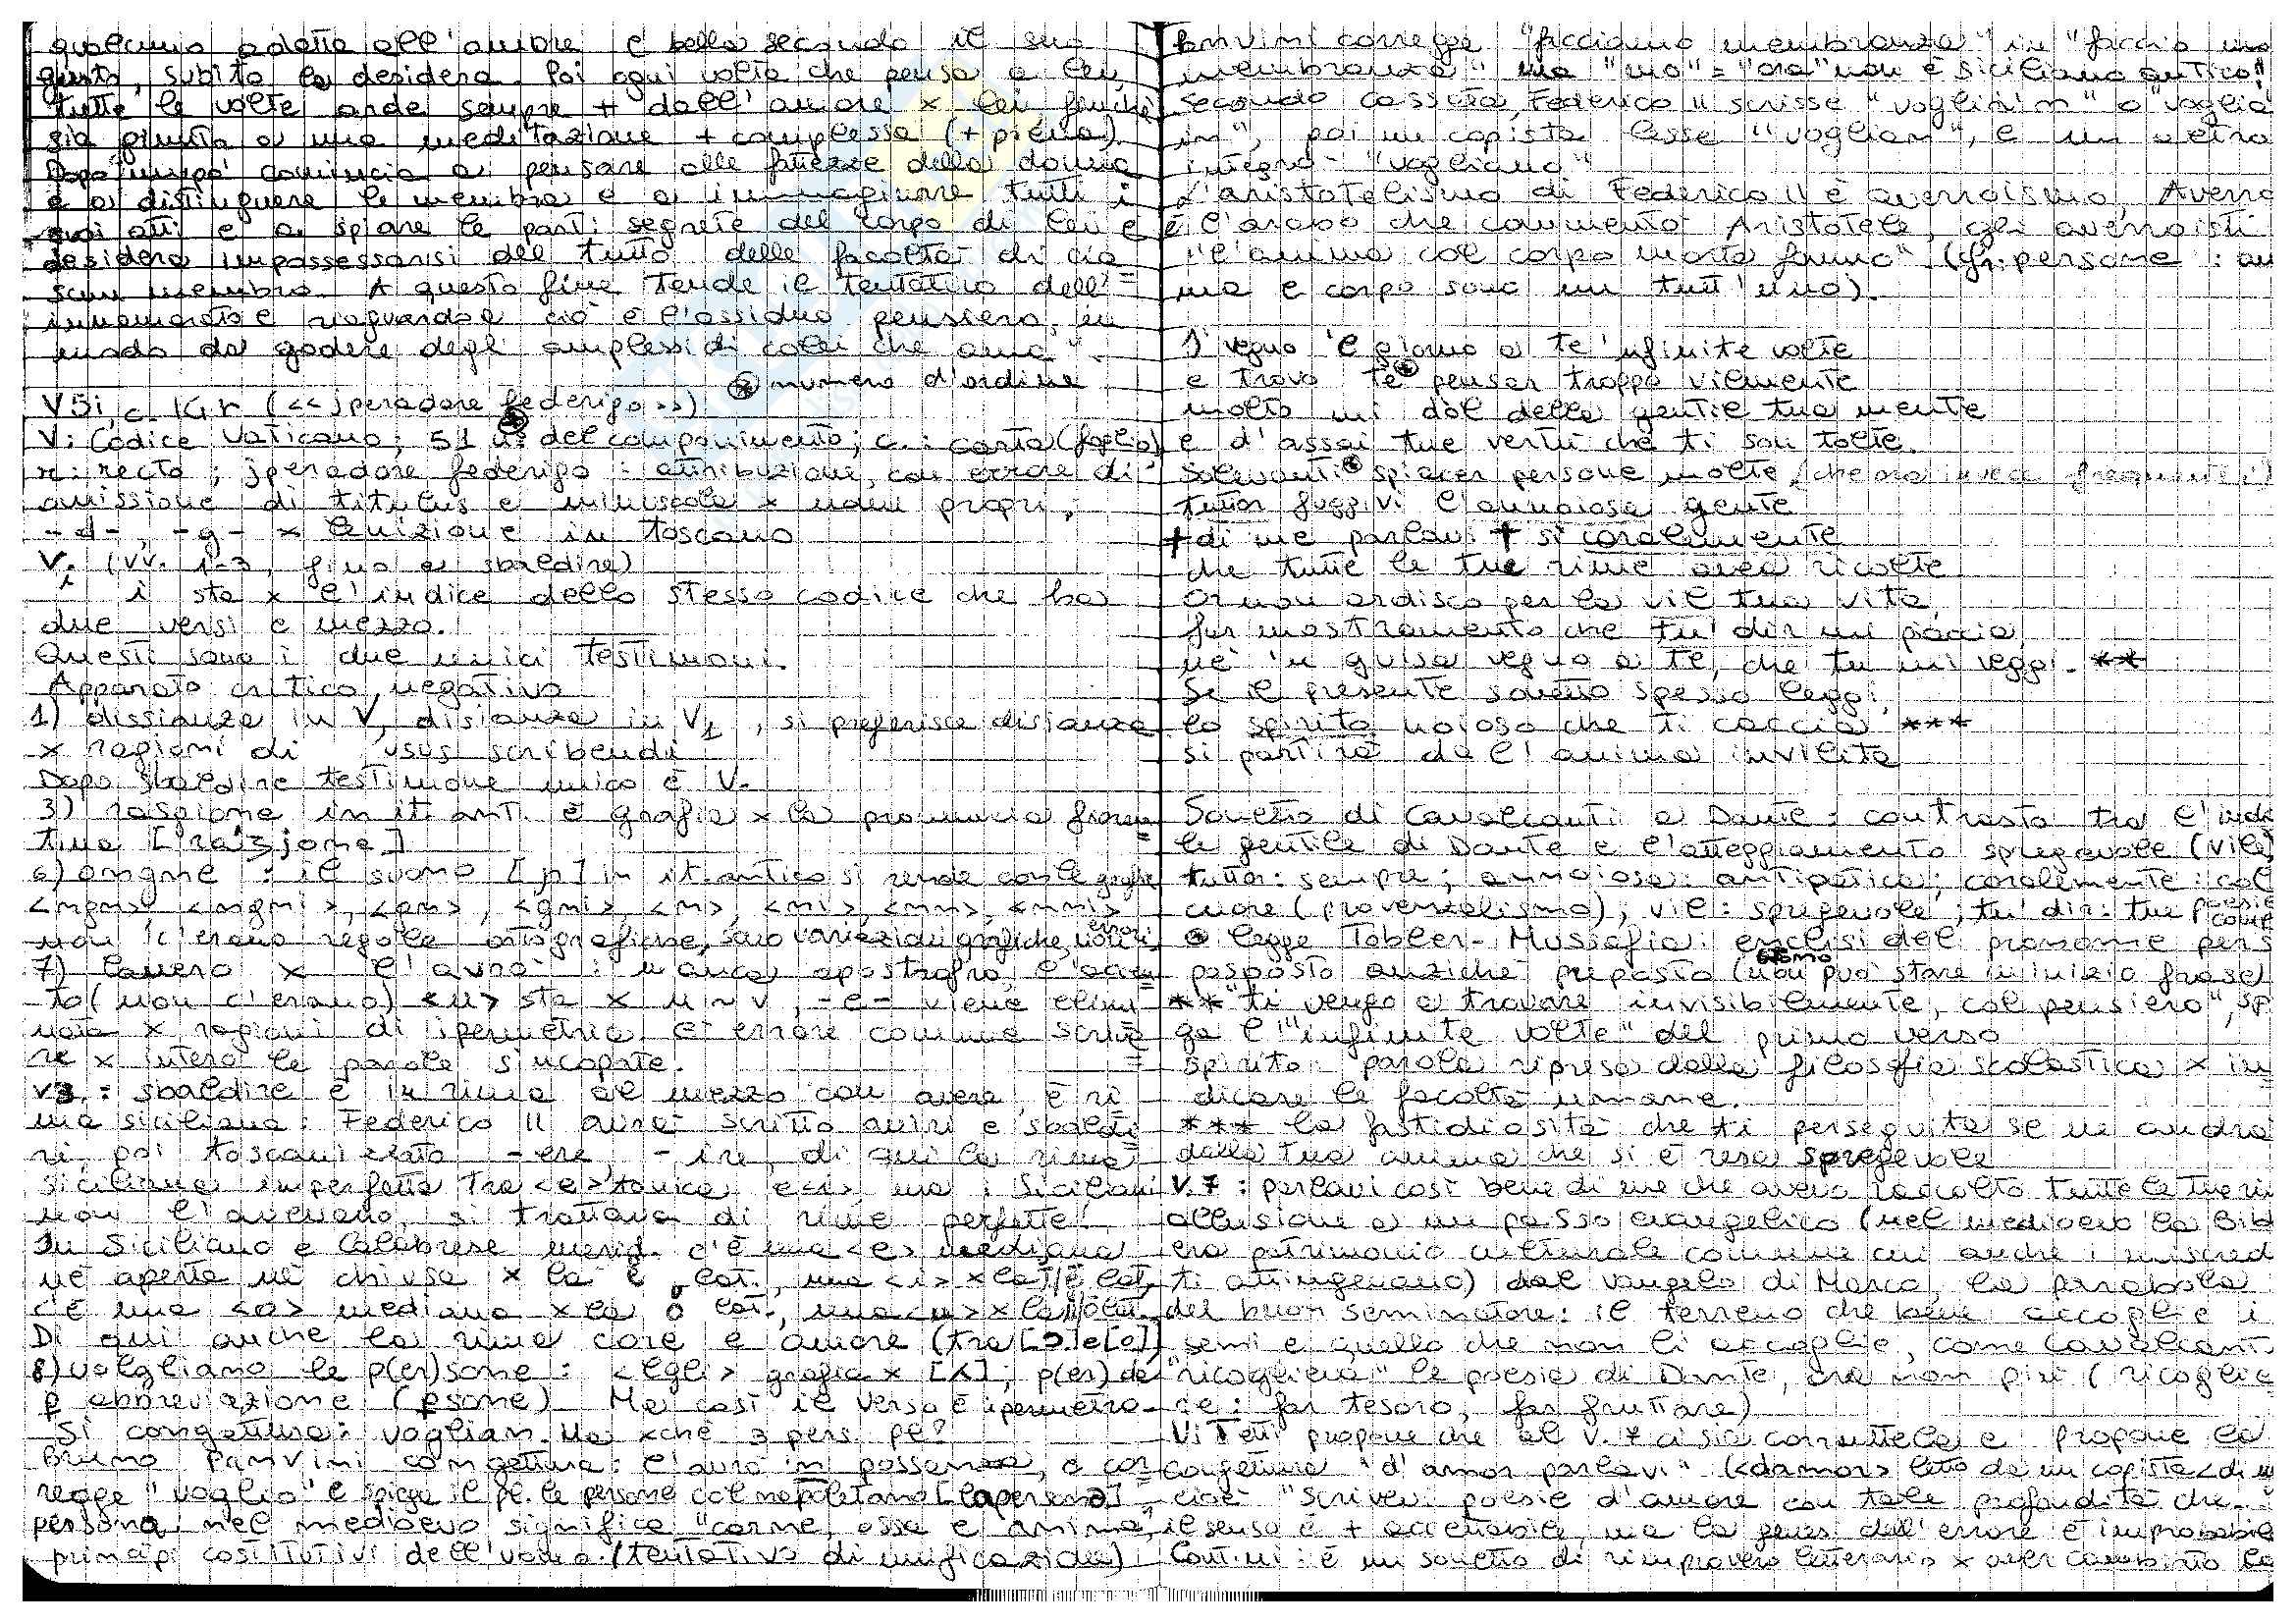 qualcuno adatta all'amore e bella secondo il suo
gusto, subito la desidera. Poi ogni volta che pensa a lei,
tutte le volte arde sempre + dell'amore x lei finché
sia giunto a una meditazione + complessa (+ piena).
Dopo un po' comincia a pensare alle fattezze della donna
e a distinguere le membra e a immaginare tutti i
suoi atti e a spiare le parti segrete del corpo di lei e
desidera impossessarsi del tutto delle facoltà di cia
scun membro. A questo fine tende il tentativo dell'=
innamorato e riguarda ciò è l'assiduo pensiero, in
modo da godere degli amplessi di colei che ama".
⊛ numero d'ordine
V51, c. 14r (<<jperadore federigo>>)
V: Codice Vaticano; 51 n° del componimento; c.: carta (foglio)
r: recto; jperadore federigo: attribuzione, con errore di
omissione di titulus e minuscole x nomi propri;
-d-, -g- x lenizione in toscano
V1 (vv. 1-3, fino a sbaldire)
i sta x l'indice dello stesso codice che ha
due versi e mezzo.
Questi sono i due unici testimoni.
Apparato critico, negativo
1) dissianza in V, disianza in V1, si preferisce disianza
x ragioni di usus scribendi
Dopo sbaldire testimone unico è V.
3) rasgione in it. ant. è grafia x la pronuncia fioren=
tina [raiʒjone]
6) ongne: il suono [ɲ] in it. antico si rende con le grafie
<ngn> <ngni>, <gn>, <gni>, <n>, <ni>, <nn>, <nni>
non c'erano regole ortografiche, sono variazioni grafiche, non errori
7) lauero x l'avrò: manca apostrofo, l'accen=
to (non c'erano) <u> sta x u~v, -e- viene elimi=
nata x ragioni di ipermetria. È errore comune scrive=
re x intero le parole sincopate.
v3: sbaldire è in rima al mezzo con avere, è ri
ma siciliana: Federico II avrà scritto aviri e sbaldi=
ri, poi toscanizzato -ere, -ire, di qui la rima
siciliana imperfetta tra <e> tonica e <i>, ma i Siciliani
non l'avevano, si trattava di rime perfette!
In Siciliano e Calabrese merid. c'è una <e> mediana
né aperta né chiusa x la ĕ lat., una <i> x la ī/ē lat,
c'è una <o> mediana x la ŏ lat., una <u> x la ū/ō lat.
Di qui anche la rima core e amore (tra [ɔ] e [o])
8) volgliano le p(er)sone: <lgli> grafia x [ʎ]; p(er) da
p abbreviazione (psone). Ma così il verso è ipermetro.
Si congettura: voglian. Ma xchè 3 pers pl?
Bruno Panvini congettura: l'avrò in possanza, e cor=
regge "voglio" e spiega il pl. le persone col napoletano [lapersona]
persona nel medioevo significa "carne, ossa e anima,
principi costitutivi dell'uomo. (tentativo di unificazione)
Panvini corregge "facciamo membranza" in "faccio mo
membranza" ma "mo"="ora" non è siciliano antico!
Secondo Casseta, Federico II scrisse "vogliain" o "voglia
in", poi un copista lesse "voglian", e un altro
integrò "vogliano"
L'aristotelismo di Federico II è averroismo, Averro
è l'arabo che commentò Aristotele, gli averroisti
"l'anima col corpo morta fanno" (cfr. persone: an
ma e corpo sono un tutt'uno).
I' vegno 'l giorno a te 'nfinite volte
e trovo te⊛ pensar troppo vilmente
molto mi dol della gentil tua mente
e d'assai tue vertù che ti son tolte.
Solevanti⊛ spiacer persone molte (che ora invece frequenti)
tuttor fuggivi l'annoiosa gente
+di me parlavi + sì coralemente
che tutte le tue rime avea ricolte
Or non ardisco per la vil tua vita,
far mostramento che tu' dir mi piaccia,
né 'n guisa vegno a te, che tu mi veggi. **
Se il presente sonetto spesso leggi,
lo spirito noioso che ti caccia ***
si partirà da l'anima invilita
Sonetto di Cavalcanti a Dante: contrasto tra l'indo
le gentile di Dante e l'atteggiamento spregevole (vile)
tuttor: sempre; annoiosa: antipatica; coralemente: col
cuore (provenzalismo); vil: spregevole; tu' dir: tue poesie
⊛ legge Tobler-Mussafia: enclisi del pronome pers
posposto anziché preposto (non può stare in inizio frase)
** "ti vengo a trovare invisibilmente, col pensiero", sp
ga l'"infinite volte" del primo verso
spirito: parola ripresa dalla filosofia scolastica x in=
dicare le facoltà umane.
*** la fastidiosità che ti perseguita se ne andrà
dalla tua anima che si è resa spregevole
V. 7: parlavi così bene di me che avevo raccolto tutte le tue ri
allusione a un passo evangelico (nel medioevo la Bib
era patrimonio culturale comune cui anche i miscred
ti attingevano) dal vangelo di Marco, la parabola
del buon seminatore: il terreno che bene accoglie i
semi e quello che non li accoglie, come Cavalcanti
"ricoglieva" le poesie di Dante, ora non più (ricoglie
re: far tesoro, far fruttare)
ViTetti propone che al v. 7 ci sia corruttela e propone la
congettura "d'amor parlavi" (<damor> letto da un copista <di m
cioè "scrivevi poesie d'amore con tale profondità che.."
il senso è + accettabile, ma la genesi dell'errore è improbabile
Contini: è un sonetto di rimprovero letterario x aver cambiato la